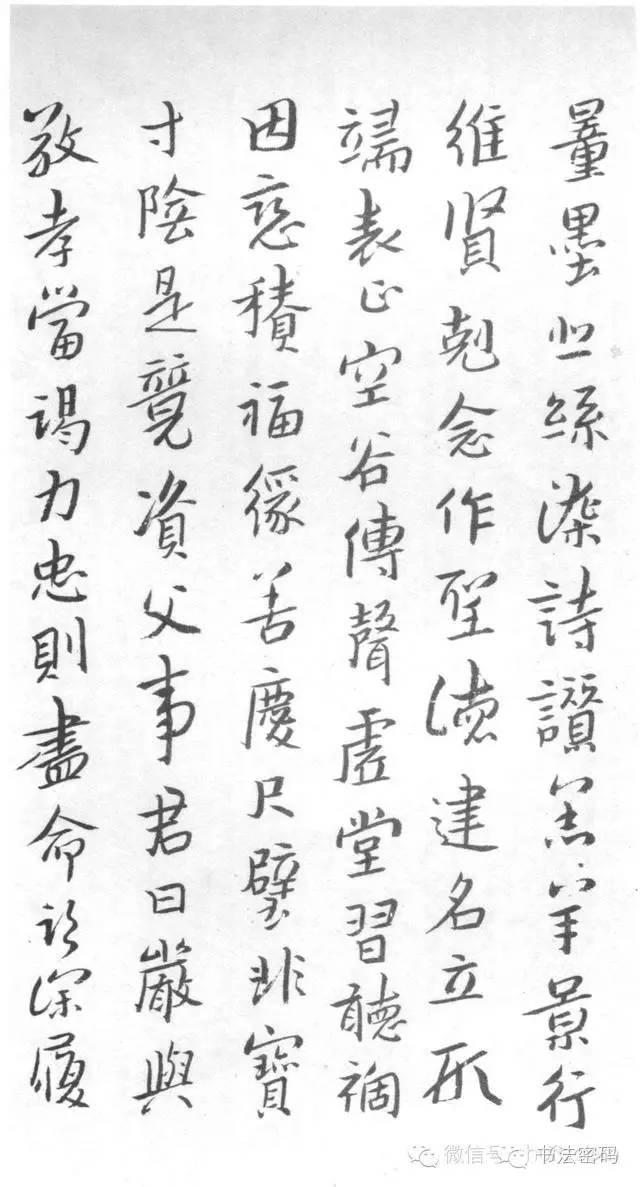 量墨悲絲染詩讚羔羊景行
維賢剋念作聖德建名立形
端表正空谷傳聲虛堂習聽禍
因惡積福緣善慶尺璧非寶
寸陰是競資父事君曰嚴與
敬孝當竭力忠則盡命臨深履
微信号
书法密码